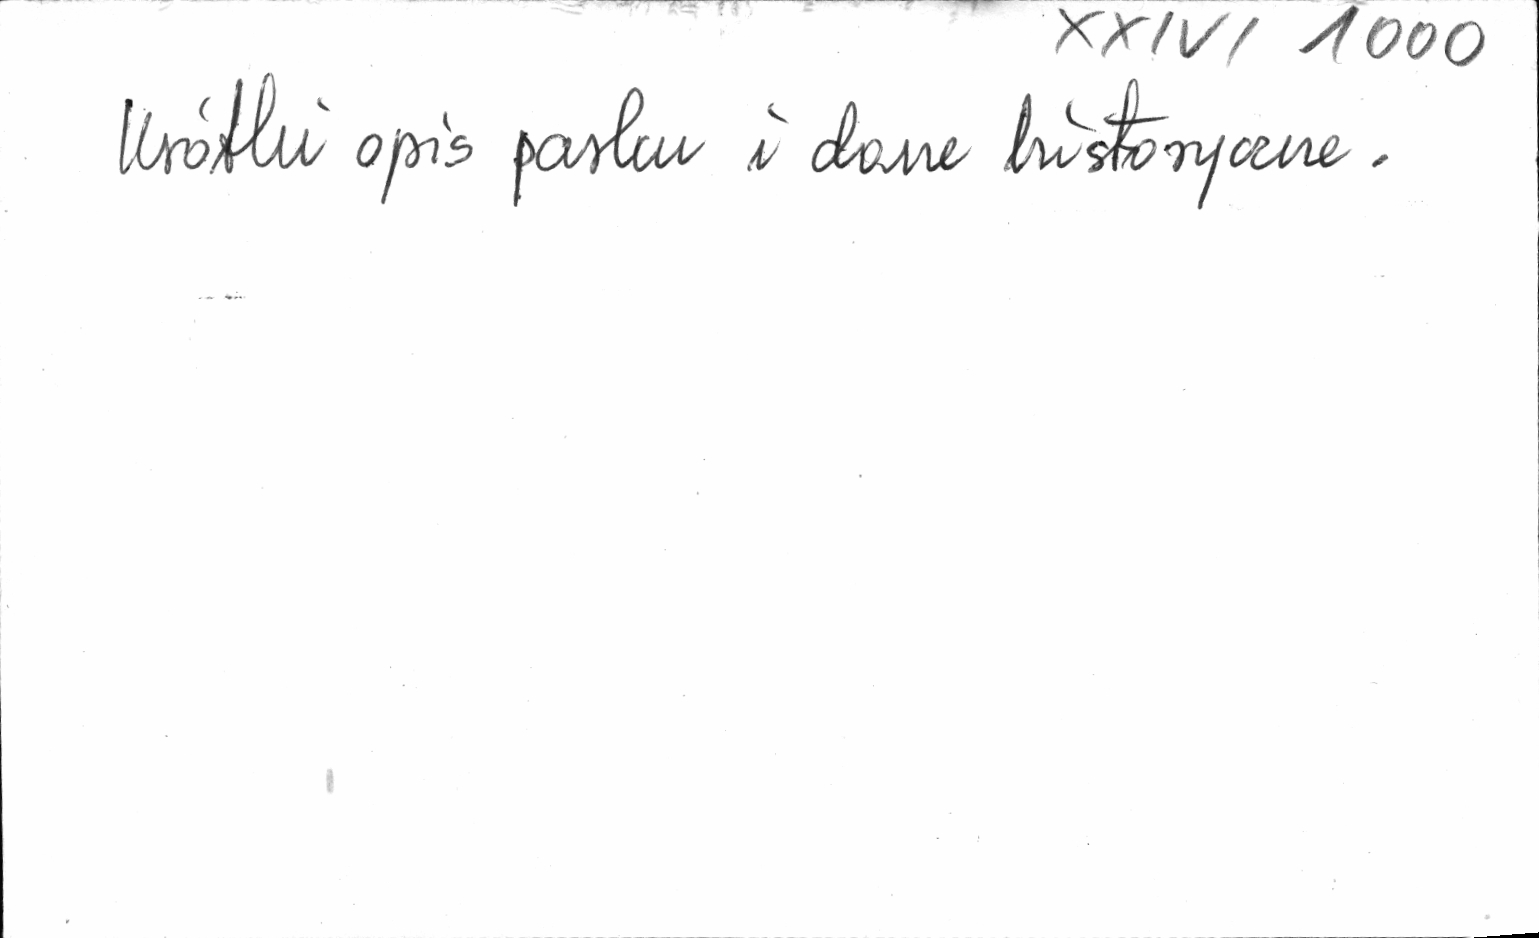 XXIV/ 1000
Krótki opis parku i dane historyczne.